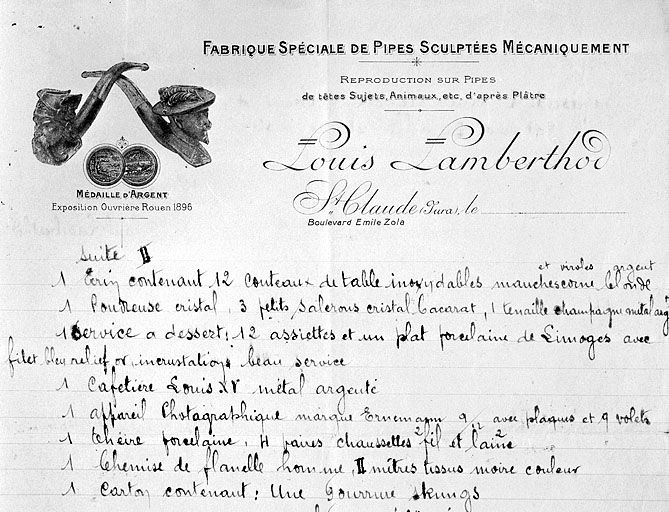 FABRIQUE SPÉCIALE DE PIPES SCULPTÉES MÉCANIQUEMENT
REPRODUCTION SUR PIPES
de têtes Sujets, Animaux, etc, d'après Plâtre
Louis Lamberthod
MÉDAILLE D'ARGENT
Exposition Ouvrière Rouen 1896
St Claude (Jura), le
Boulevard Emile Zola
suite II
et viroles argent
1 Ecrin contenant 12 couteaux de table inoxydables manches corne blonde
1 Poudreuse cristal, 3 petits salerous cristal bacarat, 1 tenaille champagne metal arg
1 Service a dessert: 12 assiettes et un plat porcelaine de Limoges avec
filet bleu relief or, incrustations beau service
1 Cafetière Louis XV métal argenté
1 appareil Photagraphique marque Ernemann 9/12 avec plaques et 9 volets
1 théière porcelaine, 4 paires chaussettes 2 fil et 2 laine
1 Chemise de flanelle homme, II mètres tissus moire couleur
1 Carton contenant: Une gourrure skungs